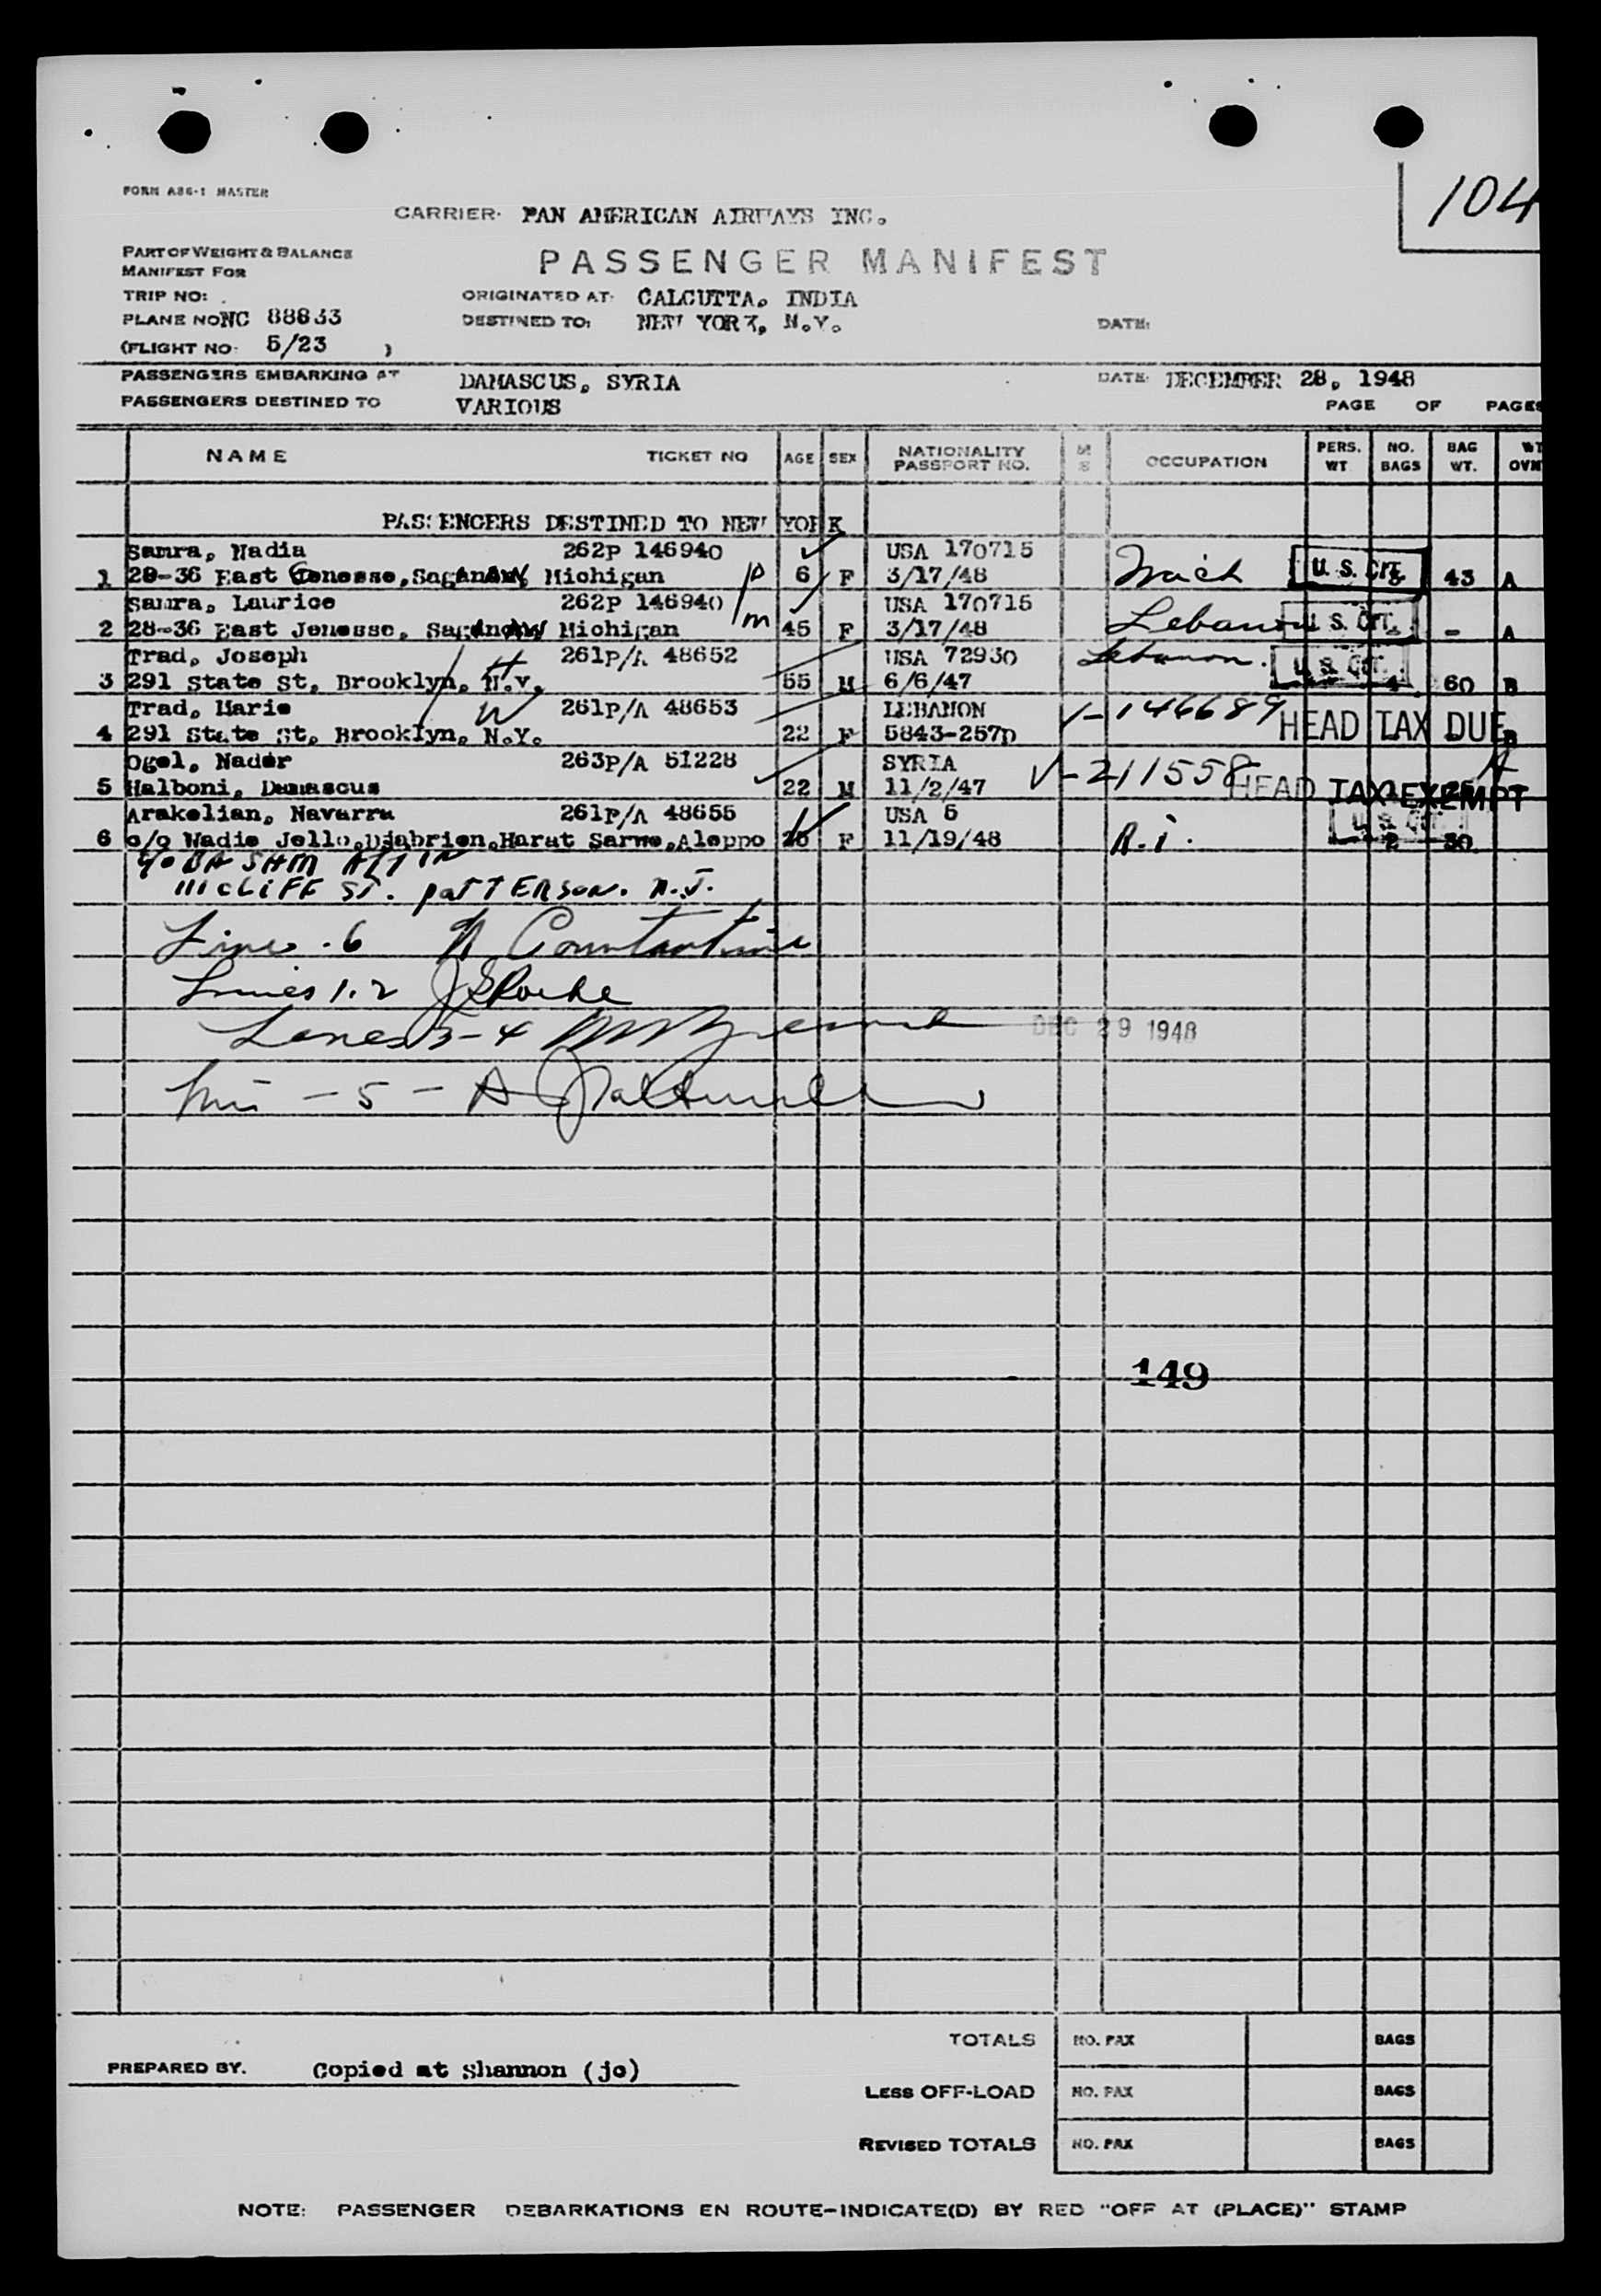 FORM A86-1 MASTER
104
CARRIER: PAN AMERICAN AIRWAYS INC.
PART OF WEIGHT & BALANCE
MANIFEST FOR
PASSENGER MANIFEST
TRIP NO:
ORIGINATED AT: CALCUTTA, INDIA
PLANE NO NC 88833
DESTINED TO: NEW YORK, N.Y.
DATE:
(FLIGHT NO. 5/23 )
PASSENGERS EMBARKING AT DAMASCUS, SYRIA DATE: DECEMBER 28, 1948
PASSENGERS DESTINED TO VARIOUS PAGE OF PAGES
NAME TICKET NO AGE SEX NATIONALITY PASSPORT NO. M S OCCUPATION PERS. WT NO. BAGS BAG WT.
PASSENGERS DESTINED TO NEW YORK
Samra, Nadia 262P 146940 USA 170715
1 28-36 East Genesse, Saganaw, Michigan 6 F 3/17/48 Mich U.S. CIT. 43 A
Samra, Laurice 262P 146940 USA 170715
2 28-36 East Jenesse, Saganaw Michigan 45 F 3/17/48 Lebanon U.S. CIT. - A
Trad, Joseph 261P/A 48652 USA 72930 Lebanon.
3 291 State St, Brooklyn, N.Y. 55 M 6/6/47 U.S. CIT. 4 60 B
Trad, Marie 261P/A 48653 LEBANON V-146689
4 291 State St, Brooklyn, N.Y. 22 F 5843-257D HEAD TAX DUE B
Ogel, Nader 263P/A 51228 SYRIA V-211558
5 Halboni, Damascus 22 M 11/2/47 HEAD TAX EXEMPT
Arakelian, Navarra 261P/A 48655 USA 5
6 c/o Wadie Jello, Djabrien, Harat Sarwe, Aleppo F 11/19/48 R.i. U.S. CIT. 2 30
111 cLiFF ST. patTERSON. N.J.
Line . 6 N Constantine
Lines 1.2 J S Roche
Lines 3-4
DEC 29 1948
- 5 - A
149
TOTALS NO. PAX BAGS
PREPARED BY. Copied at Shannon (jo)
LESS OFF-LOAD NO. PAX BAGS
REVISED TOTALS NO. PAX BAGS
NOTE: PASSENGER DEBARKATIONS EN ROUTE-INDICATE(D) BY RED "OFF AT (PLACE)" STAMP